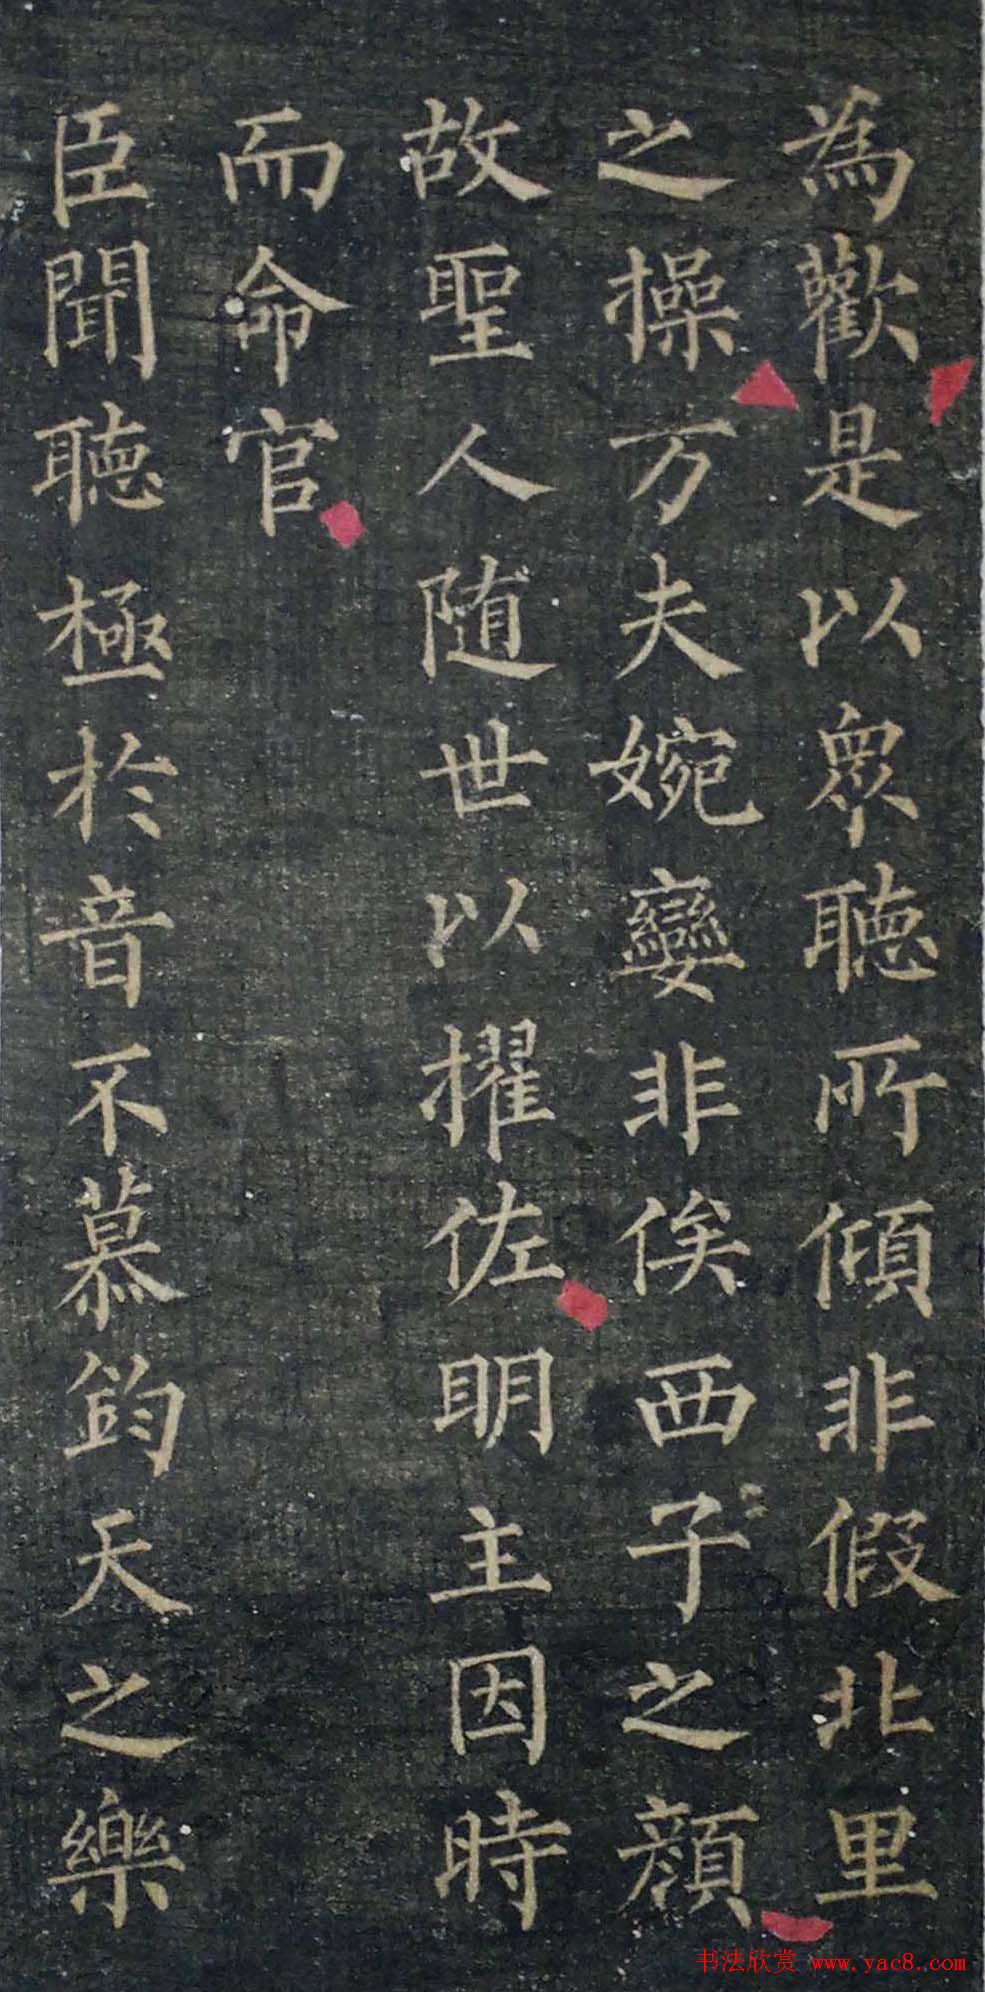 為歡是以衆聴所傾非假北里
之操万夫婉孌非俟西子之顔
故聖人随世以擢佐明主因時
而命官
臣聞聴極於音不慕鈞天之樂
书法欣赏 www.yac8.com